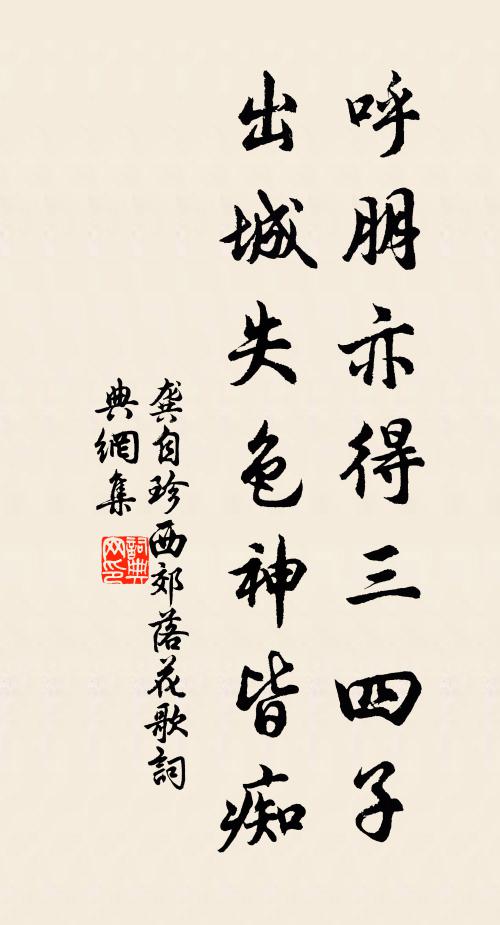 呼朋亦得三四子
出城失色神皆痴
龔自珍西郊落花歌詞
典網集
詞典网印